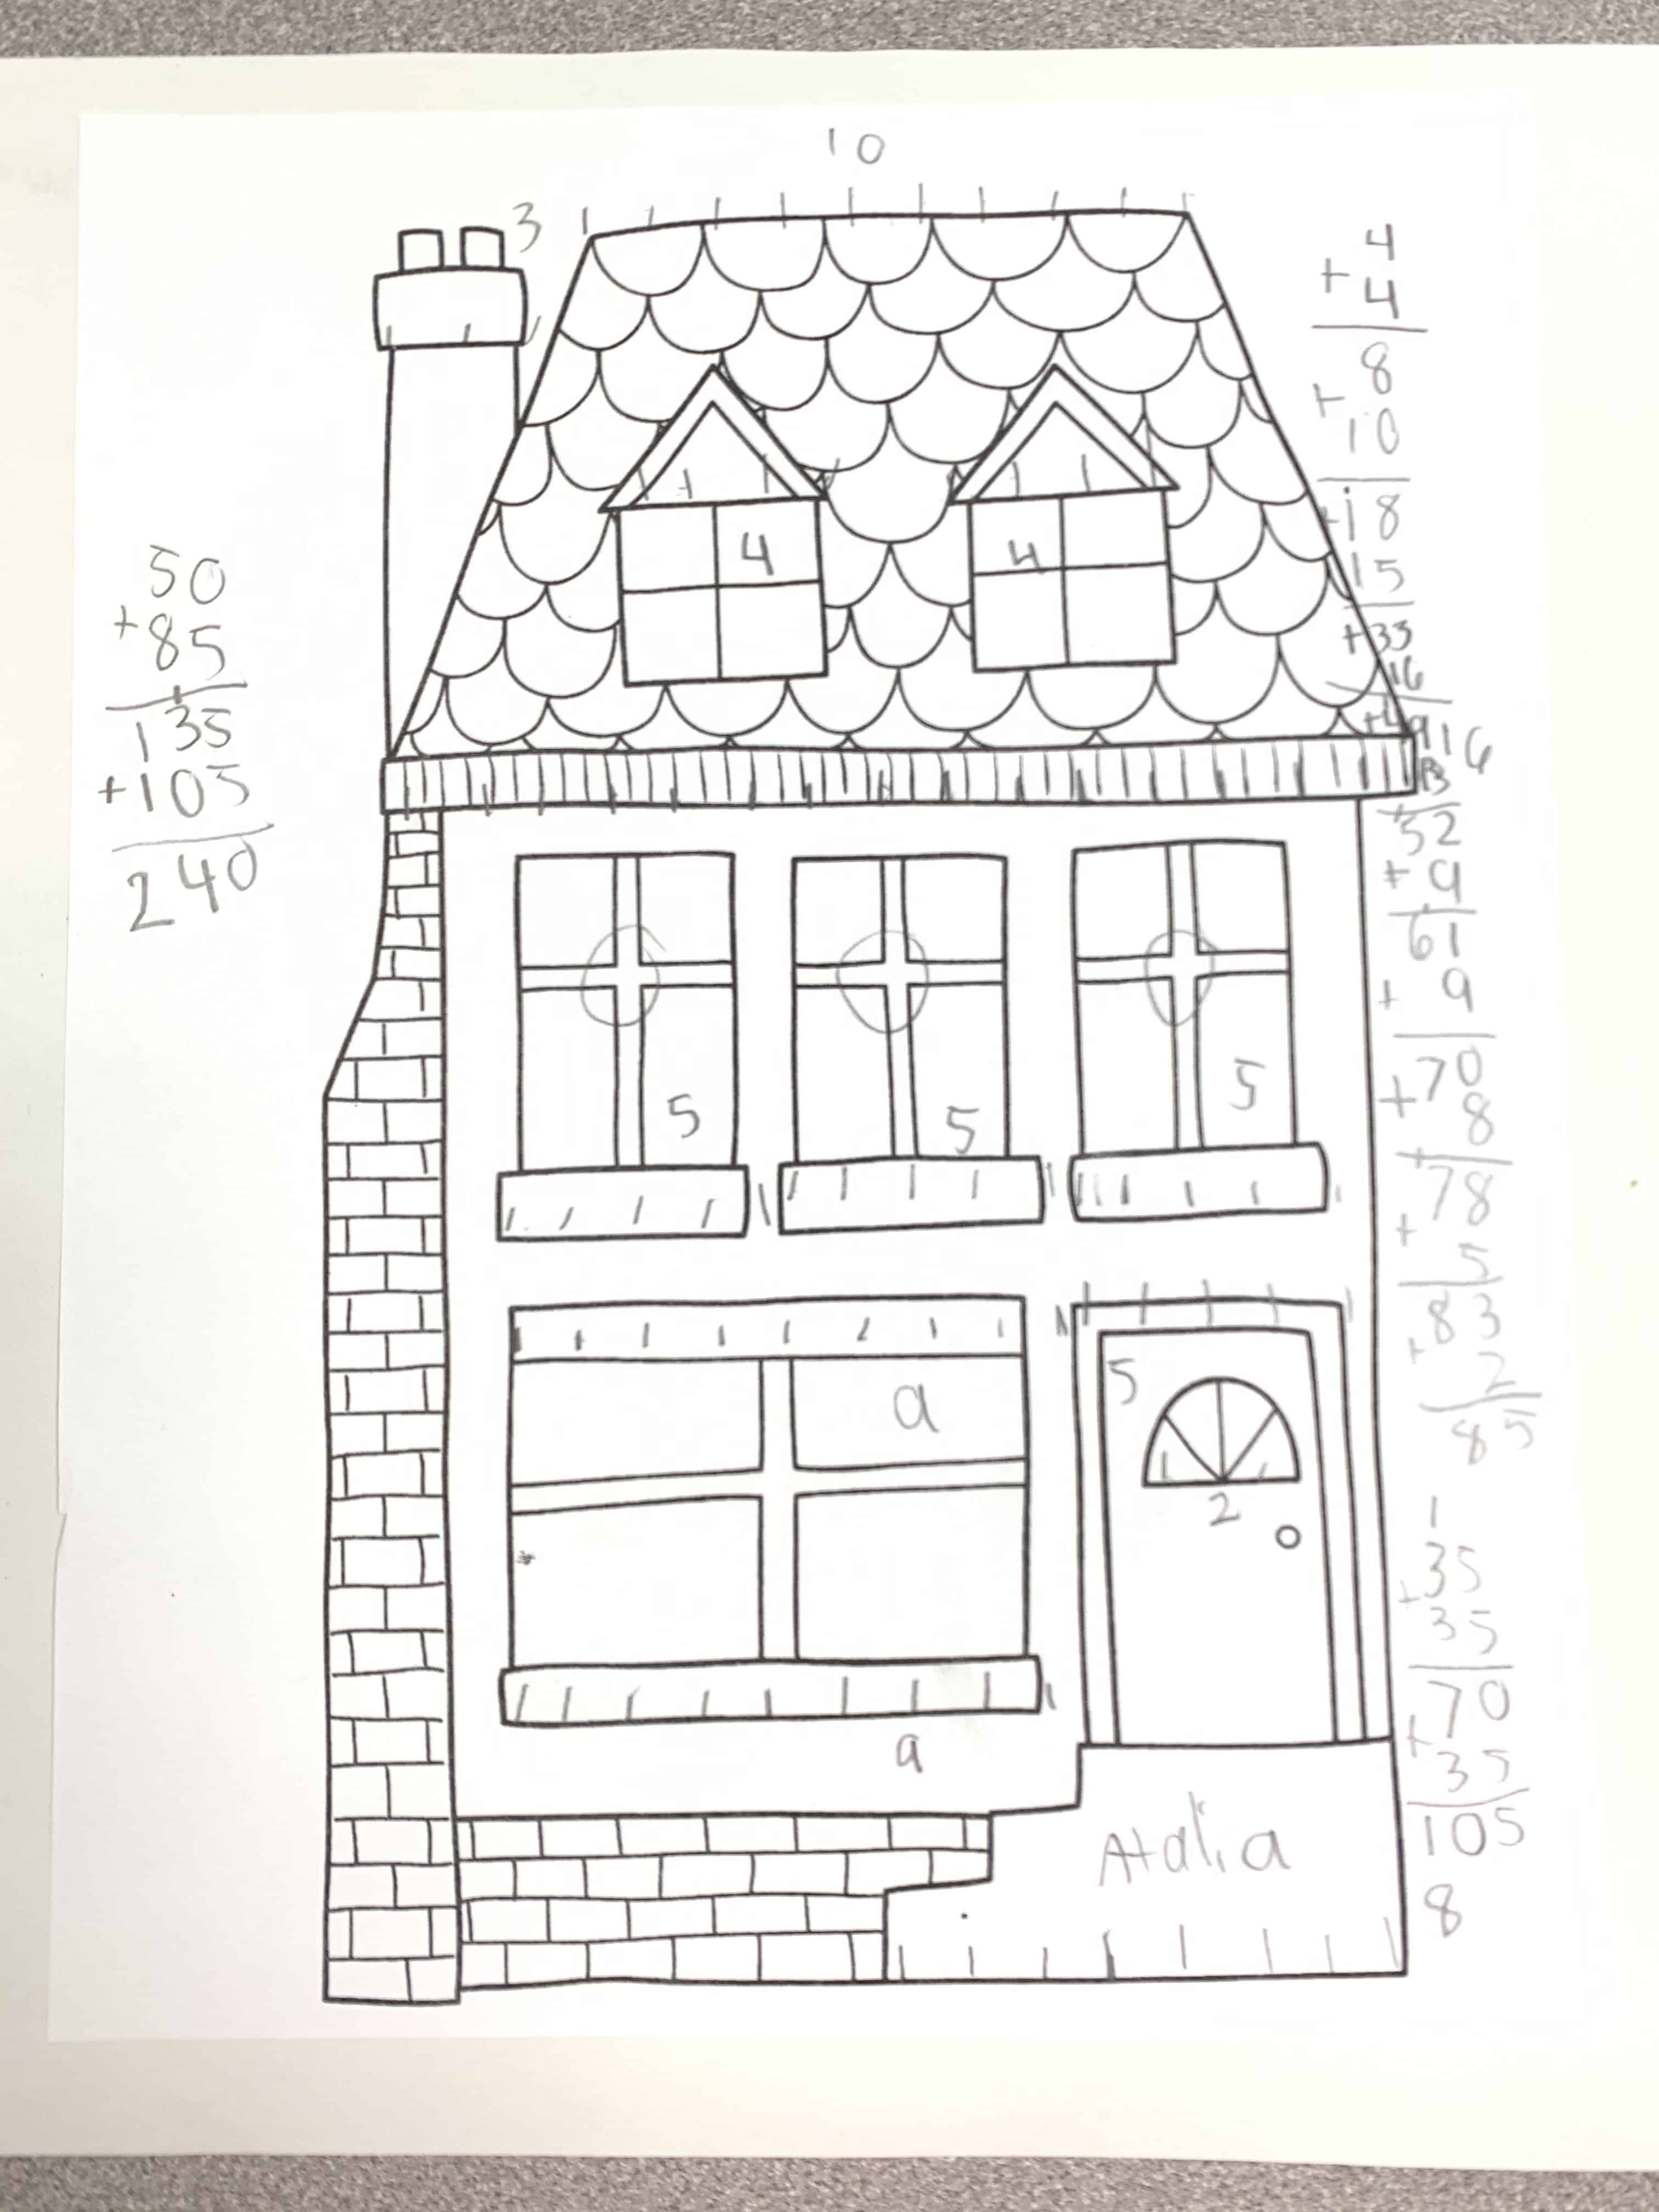 10
3
4
+ 4
8
+ 10
+18
15
+33
16
+49
16
3
+52
+ 9
61
+ 9
+70
8
+78
+ 5
83
+ 2
85
4
4
50
+85
135
+105
240
5
5
5
9
5
2
9
1
35
+35
70
+35
105
Atalia
8